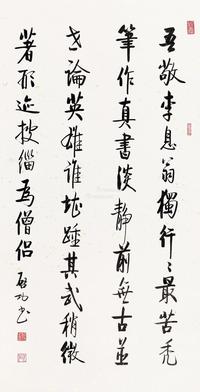 吾敬李息翁獨行々最苦禿
筆作真書淡靜前無古並
世論英雄誰堪踵其武稍微
著形迹披緇為僧侶 启功书